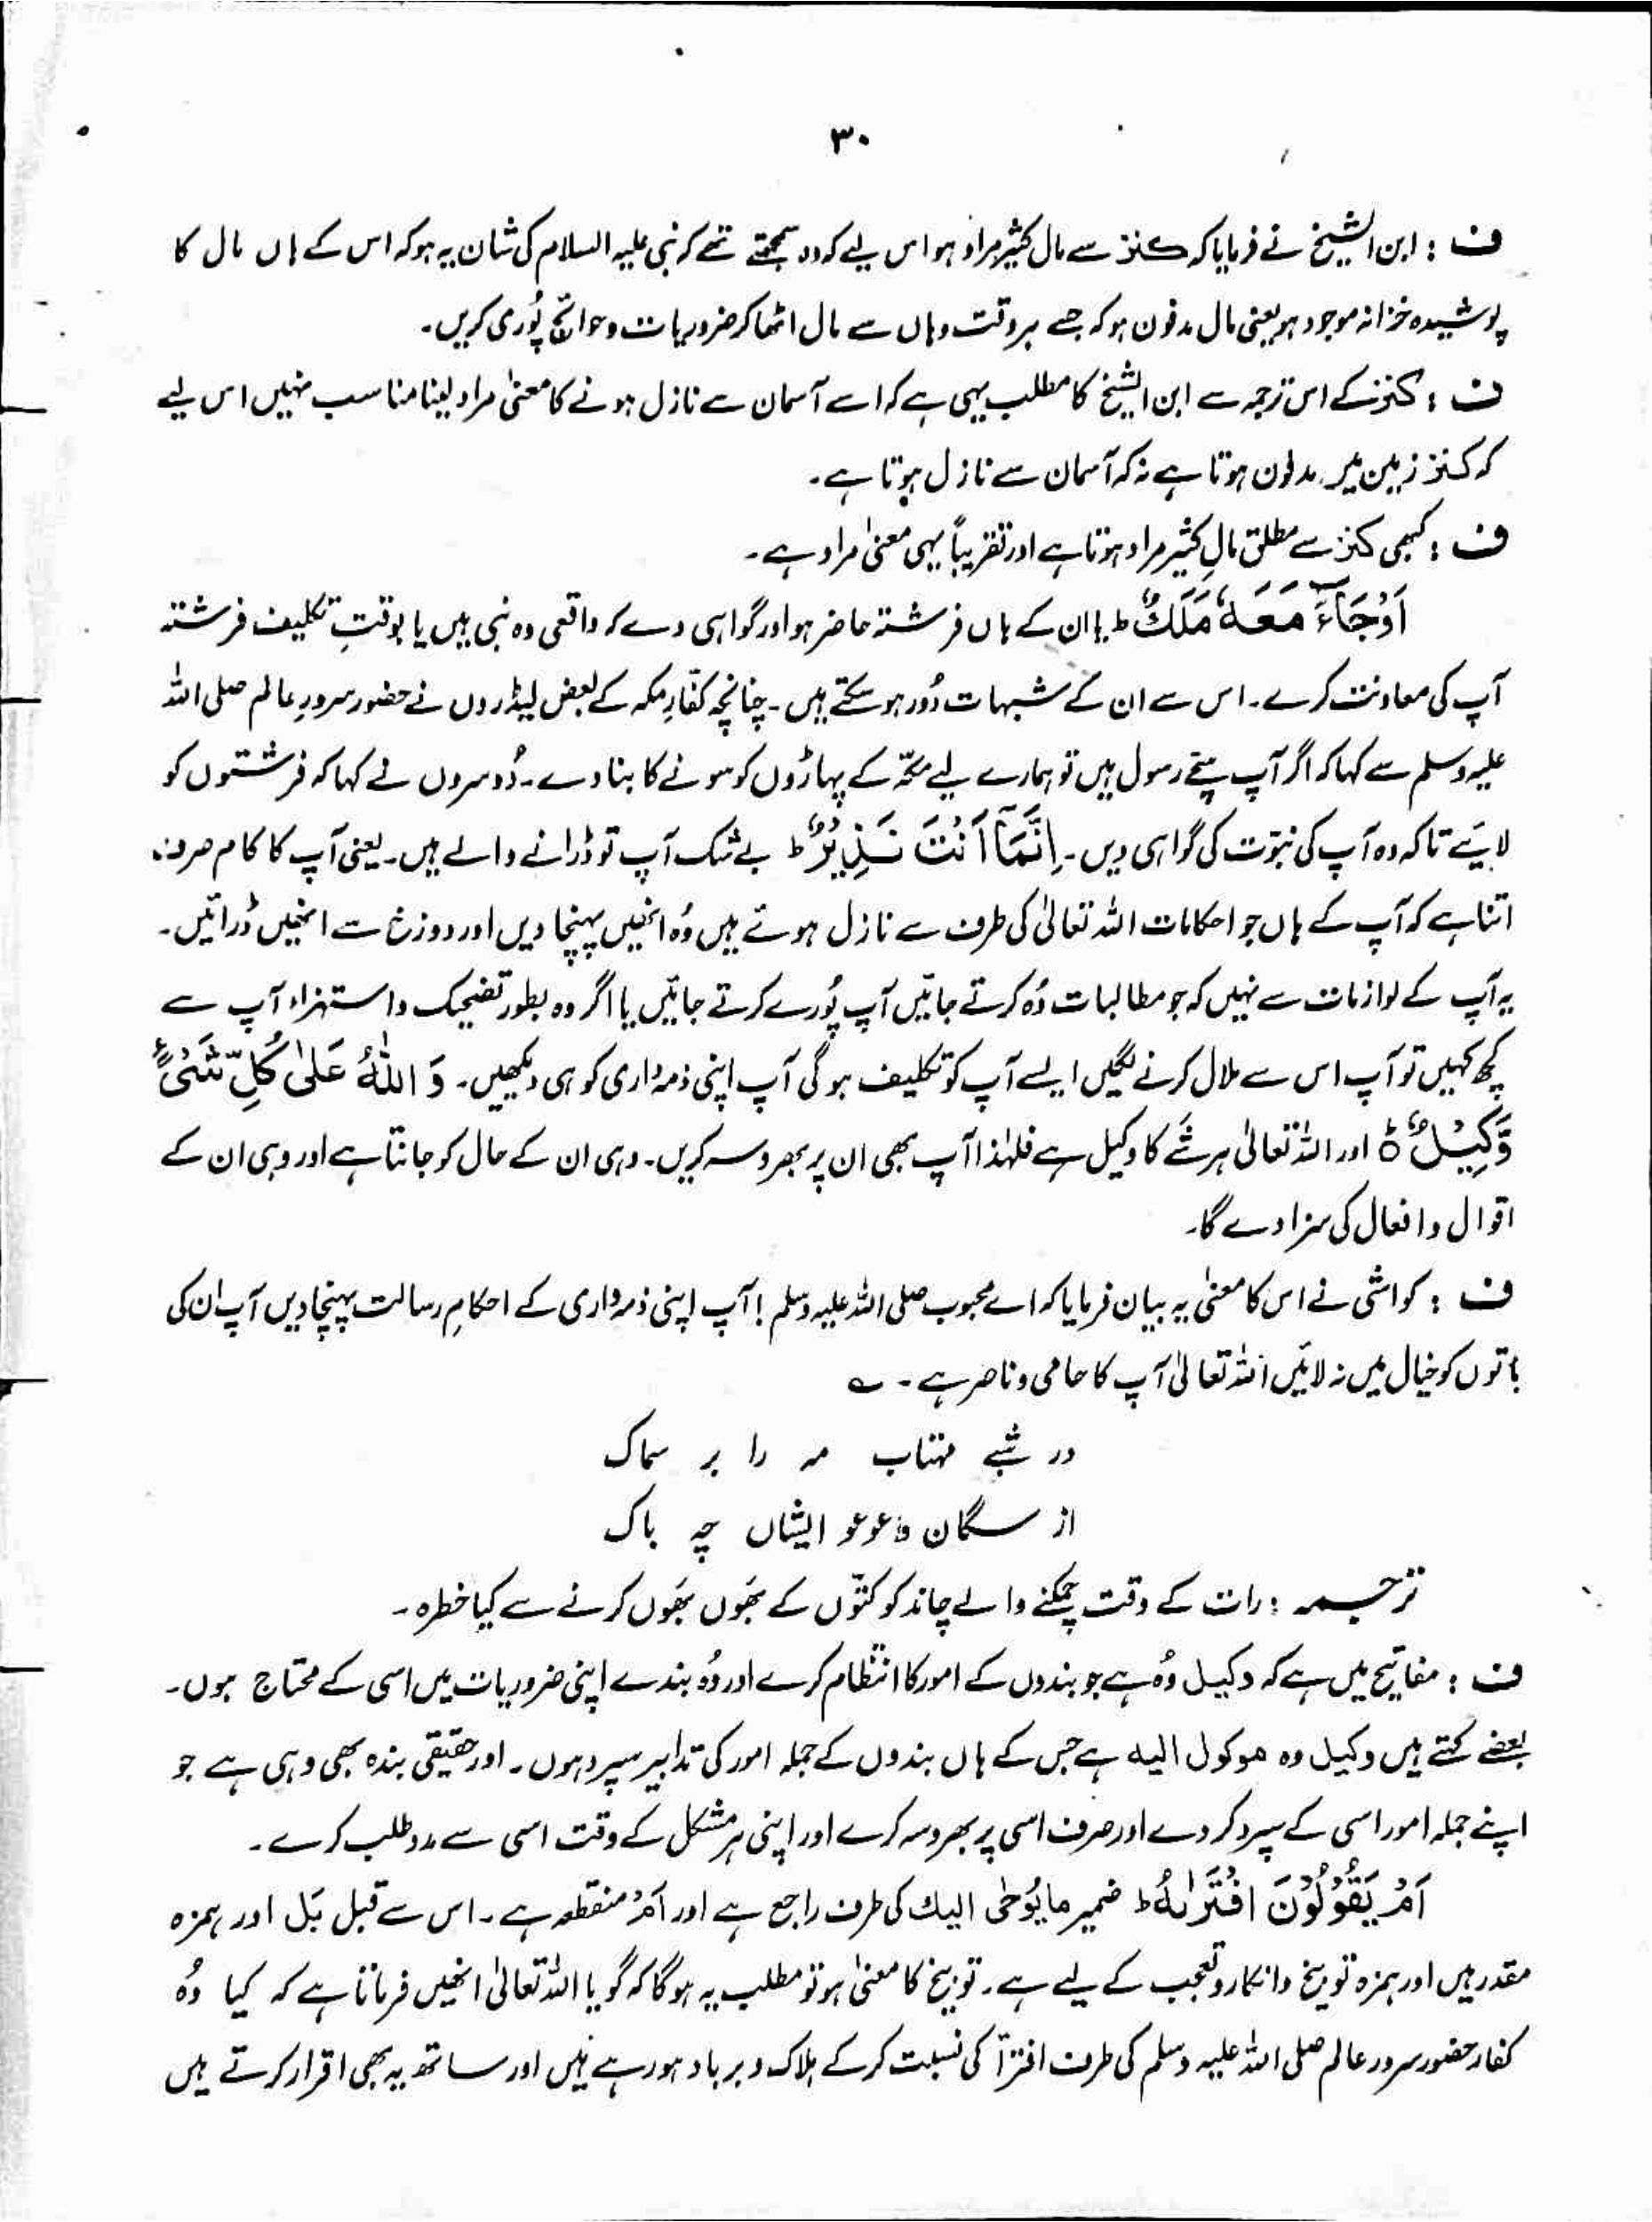 ۳۰
ف : ابن الشیخ نے فرمایا کہ کنز سے مال کثیر مراد ہو اس لیے کہ وہ سمجھتے تھے کہ نبی علیہ السلام کی شان یہ ہو کہ اس کے ہاں مال کا
پوشیدہ خزانہ موجود ہو یعنی مال مدفون ہو کہ جسے ہر وقت وہاں سے مال اٹھا کر ضروریات و حوائج پُوری کریں۔
ف : کنز کے اس ترجمہ سے ابن الشیخ کا مطلب یہی ہے کہ اسے آسمان سے نازل ہونے کا معنیٰ مراد لینا مناسب نہیں اس لیے
کہ کنز زمین میں مدفون ہوتا ہے نہ کہ آسمان سے نازل ہوتا ہے۔
ف : کبھی کنز سے مطلق مالِ کثیر مراد ہوتا ہے اور تقریباً یہی معنیٰ مراد ہے۔
اَوْجَآءَ مَعَهٗ مَلَكٌ ط یا ان کے ہاں فرشتہ حاضر ہو اور گواہی دے کہ واقعی وہ نبی ہیں یا بوقتِ تکلیف فرشتہ
آپ کی معاونت کرے۔ اس سے ان کے شبہات دُور ہو سکتے ہیں۔ چنانچہ کفارِ مکہ کے بعض لیڈروں نے حضور سرورِ عالم صلی اللہ
علیہ وسلم سے کہا کہ اگر آپ سچّے رسول ہیں تو ہمارے لیے مکّہ کے پہاڑوں کو سونے کا بنا دے۔ دُوسروں نے کہا کہ فرشتوں کو
لایئے تاکہ وہ آپ کی نبوّت کی گواہی دیں۔ اِنَّمَآ اَنْتَ نَذِيْرٌ ط بے شک آپ تو ڈرانے والے ہیں۔ یعنی آپ کا کام صرف
اتنا ہے کہ آپ کے ہاں جو احکامات اللہ تعالیٰ کی طرف سے نازل ہوتے ہیں وُہ انھیں پہنچا دیں اور دوزخ سے انھیں ڈرائیں۔
یہ آپ کے لوازمات سے نہیں کہ جو مطالبات وُہ کرتے جائیں آپ پُورے کرتے جائیں یا اگر وہ بطور تضحیک و استہزاء آپ سے
کچھ کہیں تو آپ اس سے ملال کرنے لگیں ایسے آپ کو تکلیف ہوگی آپ اپنی ذمہ داری کو ہی دیکھیں۔ وَ اللّٰهُ عَلٰى كُلِّ شَیْءٍ
وَّكِيْلٌ ۵ اور اللہ تعالیٰ ہر شَے کا وکیل ہے فلہٰذا آپ بھی ان پر بھروسہ کریں۔ وہی ان کے حال کو جانتا ہے اور وہی ان کے
اقوال و افعال کی سزا دے گا۔
ف : کواشی نے اس کا معنیٰ یہ بیان فرمایا کہ اے محبوب صلی اللہ علیہ وسلم ! آپ اپنی ذمہ داری کے احکامِ رسالت پہنچا دیں آپ ان کی
باتوں کو خیال میں نہ لائیں اللہ تعالیٰ آپ کا حامی و ناصر ہے۔ ؎
در شبے مہتاب مہ را بر سماک
از سگان و عوعو ایشاں چہ باک
ترجمہ : رات کے وقت چمکنے والے چاند کو کتّوں کے بَھوں بَھوں کرنے سے کیا خطرہ۔
ف : مفاتیح میں ہے کہ وکیل وُہ ہے جو بندوں کے امور کا انتظام کرے اور وُہ بندے اپنی ضروریات میں اسی کے محتاج ہوں۔
بعضے کہتے ہیں وکیل وہ موکول الیہ ہے جس کے ہاں بندوں کے جملہ امور کی تدابیر سپرد ہوں۔ اور حقیقی بندہ بھی وہی ہے جو
اپنے جملہ امور اسی کے سپرد کر دے اور صرف اسی پر بھروسہ کرے اور اپنی ہر مشکل کے وقت اسی سے مدد طلب کرے۔
اَمْ يَقُوْلُوْنَ افْتَرٰىهُ ط ضمیر مایُوحٰی الیك کی طرف راجع ہے اور اَمْ منقطعہ ہے۔ اس سے قبل بَل اور ہمزہ
مقدر ہیں اور ہمزہ توبیخ و انکار و تعجب کے لیے ہے۔ توبیخ کا معنیٰ ہو تو مطلب یہ ہوگا کہ گویا اللہ تعالیٰ انھیں فرماتا ہے کہ کیا وُہ
کفار حضور سرور عالم صلی اللہ علیہ وسلم کی طرف افترآ کی نسبت کرکے ہلاک و برباد ہو رہے ہیں اور ساتھ یہ بھی اقرار کرتے ہیں